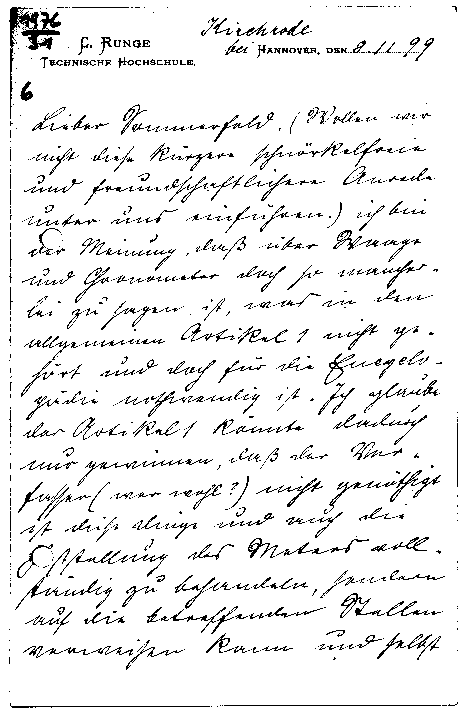 1976
51
Kirchrode
C. RUNGE
bei HANNOVER, DEN 8.11.99
TECHNISCHE HOCHSCHULE.
6
Lieber Sommerfeld. (Wollen wir
nicht diese kürzere schnörkelfreie
und freundschaftlichere Anrede
unter uns einführen.) ich bin
der Meinung, daß über Waage
und Chronometer doch so mancher-
lei zu sagen ist, was in den
allgemeinen Artikel 1 nicht ge-
hört und doch für die Encyclo-
pädie nothwendig ist. Ich glaube
der Artikel 1 könnte dadurch
nur gewinnen, daß der Ver-
fasser (wer wohl?) nicht genöthigt
ist diese Dinge und auch die
Feststellung des Meters voll-
ständig zu behandeln, sondern
auf die betreffenden Stellen
verweisen kann und selbst